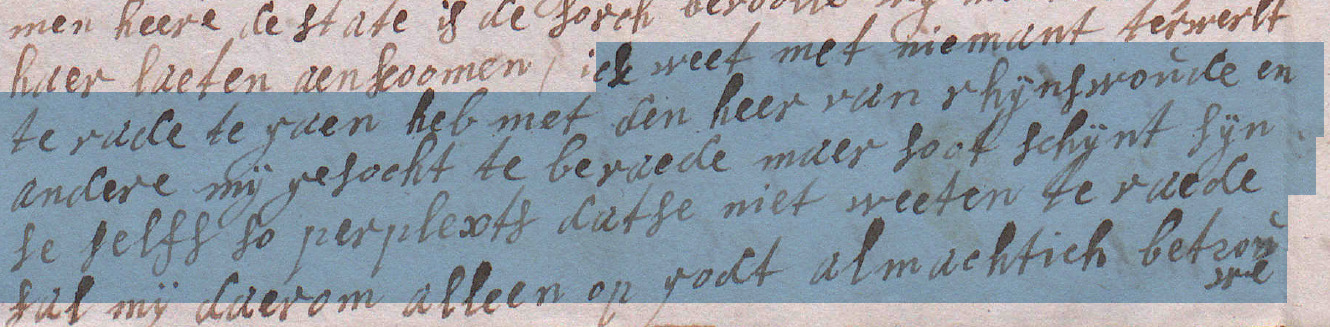 men heere de state is de sorch
haer laeten aenkoomen, ick weet met niemant terwerlt
te rade te gaen heb met den heer van rhÿnswoude en
andere mÿ gesocht te beraede maer soot schÿnt sÿn
se selfs so perplexts datse niet weeten te raede
sal mÿ daerom alleen op godt almachtich betrou
we